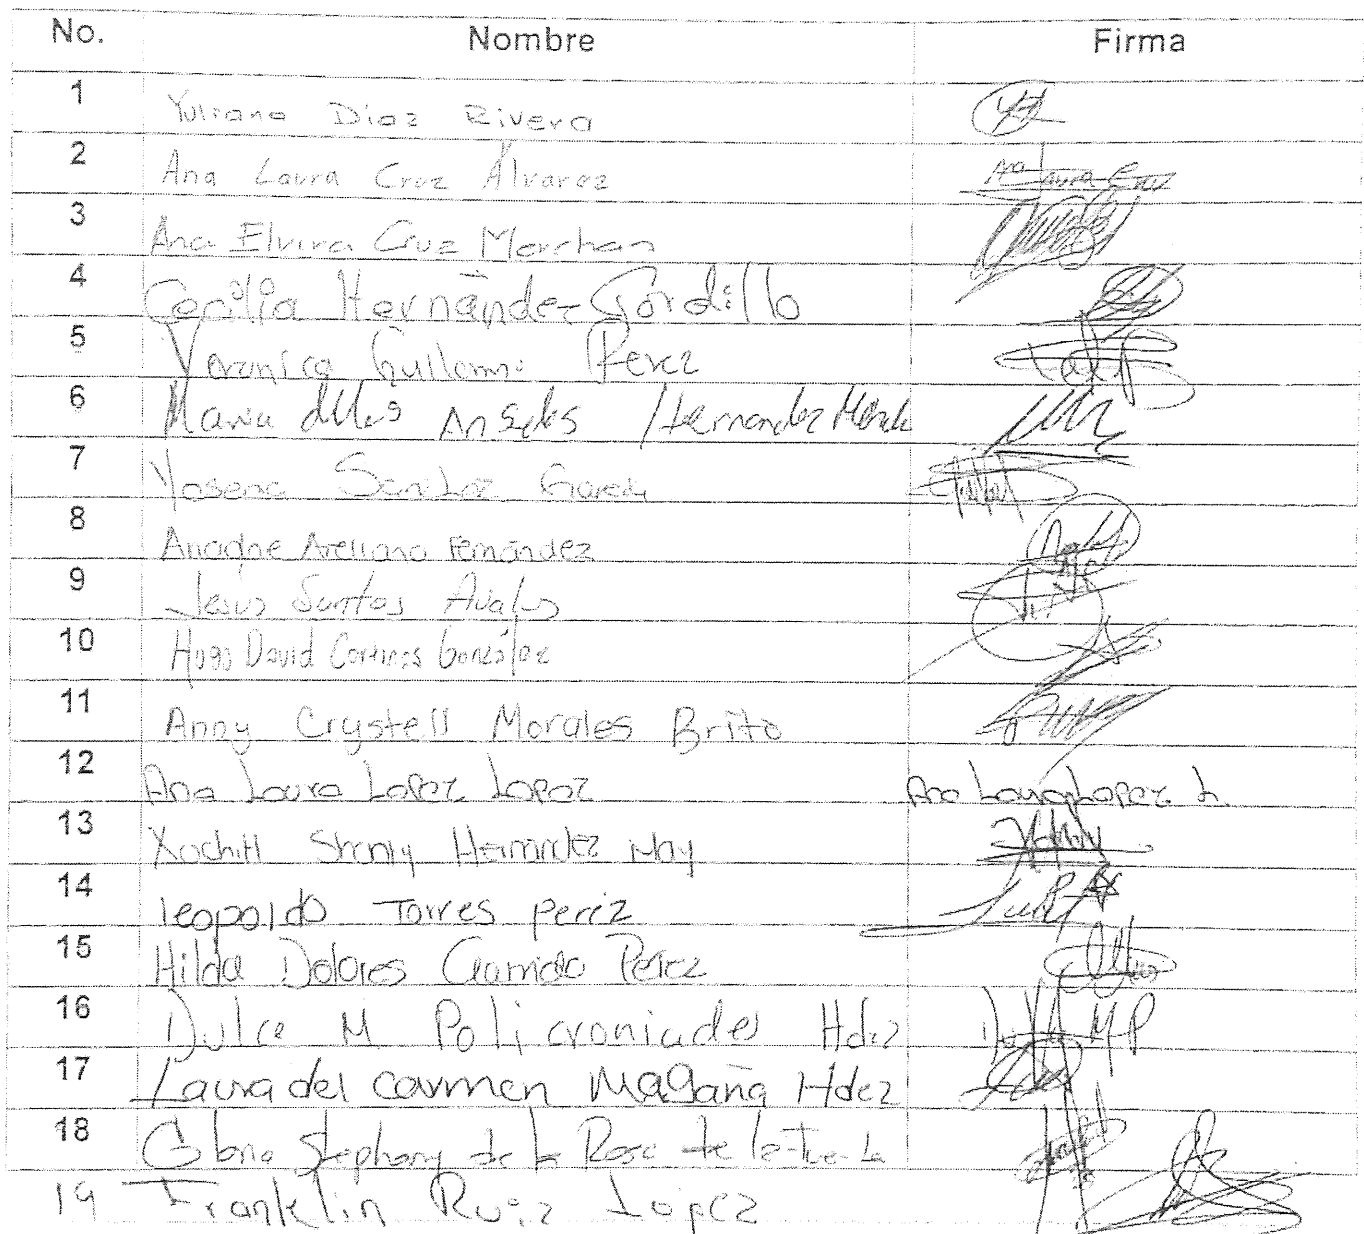 No. Nombre Firma
1 Yuliana Diaz Rivera
2 Ana Laura Cruz Álvarez Ana Laura Cruz
3 Ana Elvira Cruz Merchan
4 Cecilia Hernández Gordillo
5 Veronica Guillermo Perez
6 Maria de los Angeles Hernandez
7 Sanchez Garcia
8 Ariadne Arellano Fernández
9 Jesus Santos Avalos
10 Hugo David González
11 Anny Crystell Morales Brito
12 Ana Laura Lopez Lopez Ana Laura Lopez L.
13 Xochitl Shanly Hernández May
14 leopoldo Torres perez
15 Hilda Dolores Garrido Perez
16 Dulce M Policroniades Hdez Dulce M P
17 Laura del carmen Magaña Hdez
18 Gloria Stephany de la Rosa de la
19 Franklin Ruiz Lopez